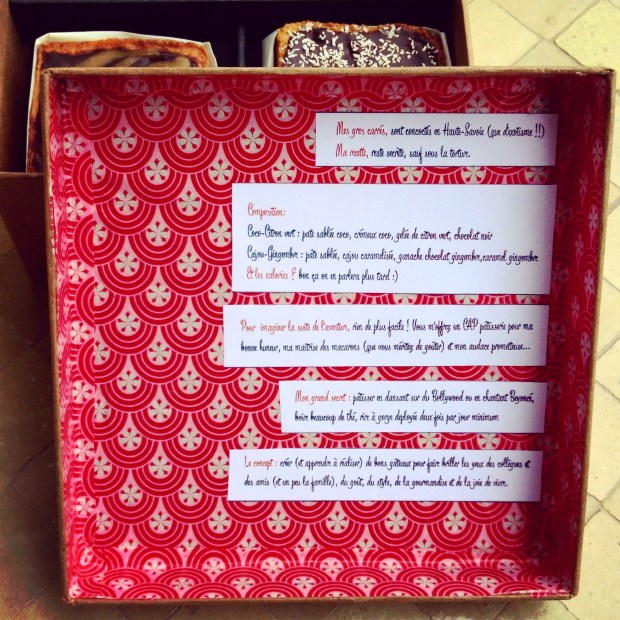 Mes gros carrés, sont concoctés en Haute-Savoie (que d'exotisme !!)
Ma recette, reste secrète, sauf sous la torture.
Composition:
Coco-Citron vert : pate sablée coco, crémeux coco, gelée de citron vert, chocolat noir
Cajou-Gingembre : pâte sablée, cajou caramélisé, ganache chocolat gingembre, caramel gingembre
Et les calories ? bon ça on en parlera plus tard :)
Pour imaginer la suite de l'aventure, rien de plus facile ! Vous m'offrez un CAP pâtisserie pour ma
bonne humeur, ma maîtrise des macarons (que vous méritez de goûter) et mon audace prometteuse...
Mon grand secret : pâtisser en dansant sur du Bollywood ou en chantant Beyoncé,
boire beaucoup de thé, rire à gorge déployée deux fois par jour minimum
Le concept : créer (et apprendre à réaliser) de bons gâteaux pour faire briller les yeux des collègues et
des amis (et un peu la famille), du goût, du style, de la gourmandise et de la joie de vivre.